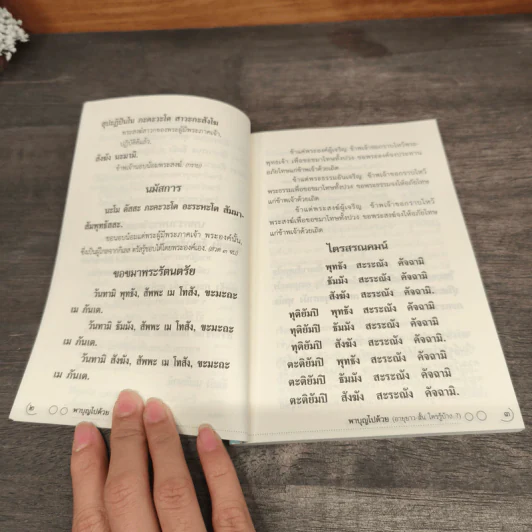 สุปฏิปันโน ภะคะวะโต สาวะกะสังโฆ
พระสงฆ์สาวกของพระผู้มีพระภาคเจ้า,
ปฏิบัติดีแล้ว,
สังฆัง นะมามิ.
ข้าพเจ้านอบน้อมพระสงฆ์. (กราบ)
นมัสการ
นะโม ตัสสะ ภะคะวะโต อะระหะโต สัมมา-
สัมพุทธัสสะ.
ขอนอบน้อมแด่พระผู้มีพระภาคเจ้า พระองค์นั้น,
ซึ่งเป็นผู้ไกลจากกิเลส ตรัสรู้ชอบได้โดยพระองค์เอง. (สวด ๓ จบ)
ขอขมาพระรัตนตรัย
วันทามิ พุทธัง, สัพพะ เม โทสัง, ขะมะถะ
เม ภันเต.
วันทามิ ธัมมัง, สัพพะ เม โทสัง, ขะมะถะ
เม ภันเต.
วันทามิ สังฆัง, สัพพะ เม โทสัง, ขะมะถะ
เม ภันเต.
พาบุญไปด้วย
ข้าแต่พระองค์ผู้เจริญ ข้าพเจ้าขอกราบไหว้พระ
พุทธเจ้า เพื่อขอขมาโทษทั้งปวง ขอพระองค์จงประทาน
อภัยโทษแก่ข้าพเจ้าด้วยเถิด
ข้าแต่พระธรรมอันเจริญ ข้าพเจ้าขอกราบไหว้
พระธรรมเพื่อขอขมาโทษทั้งปวง ขอพระธรรมจงได้อภัยโทษ
แก่ข้าพเจ้าด้วยเถิด
ข้าแต่พระสงฆ์ผู้เจริญ ข้าพเจ้าขอกราบไหว้
พระสงฆ์เพื่อขอขมาโทษทั้งปวง ขอพระสงฆ์จงได้อภัยโทษ
แก่ข้าพเจ้าด้วยเถิด
ไตรสรณคมน์
พุทธัง สะระณัง คัจฉามิ
ธัมมัง สะระณัง คัจฉามิ
สังฆัง สะระณัง คัจฉามิ.
ทุติยัมปิ พุทธัง สะระณัง คัจฉามิ
ทุติยัมปิ ธัมมัง สะระณัง คัจฉามิ
ทุติยัมปิ สังฆัง สะระณัง คัจฉามิ.
ตะติยัมปิ พุทธัง สะระณัง คัจฉามิ
ตะติยัมปิ ธัมมัง สะระณัง คัจฉามิ
ตะติยัมปิ สังฆัง สะระณัง คัจฉามิ.
พาบุญไปด้วย (อายุยาว-สั้น ใครรู้บ้าง..?)